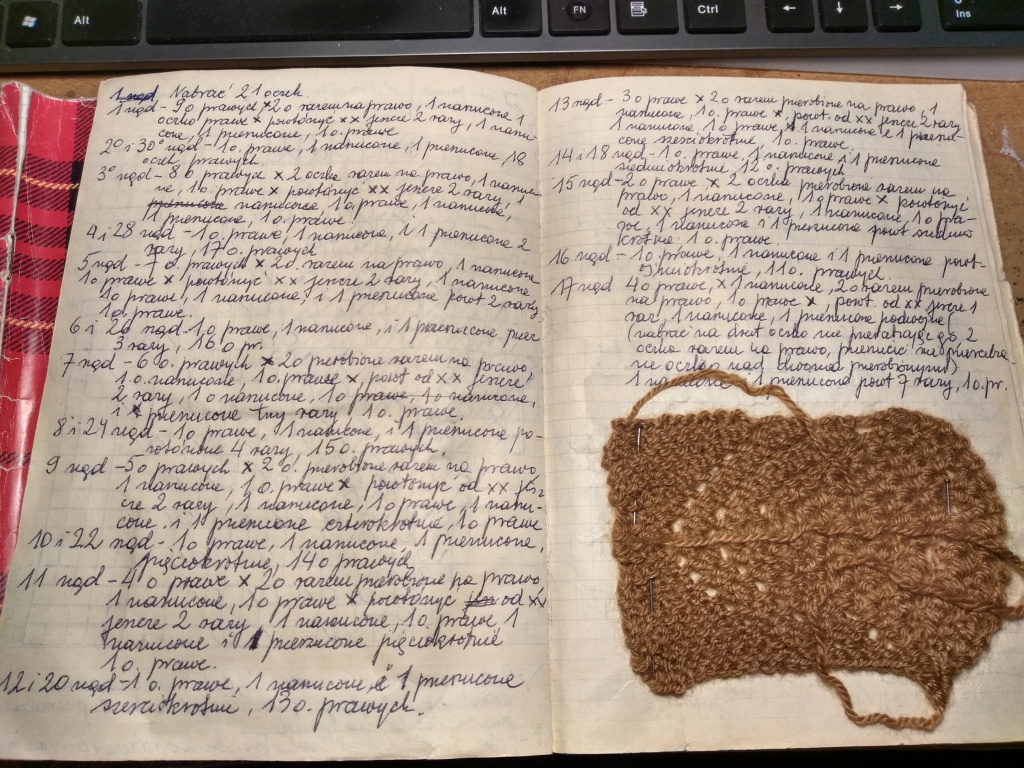 Alt
Alt
FN
Ctrl
←
↓
→
0
Ins
1 rząd Nabrać 21 oczek
1 rząd - 9 o prawych × 2 o razem na prawo, 1 narzucone 1
oczko prawe × powtórzyć ×× jeszcze 2 razy, 1 narzu-
cone, 1 przerzucone, 1 o. prawe
2° i 30° rząd - 1 o. prawe, 1 narzucone, 1 przerzucone 18
oczek prawych.
3° rząd - 8 o prawych × 2 oczka razem na prawo, 1 narzuco-
ne, 1 o. prawe × powtórzyć ×× jeszcze 2 razy, 1
narzucone, 1 o prawe, 1 narzucone,
1 przerzucone, 1 o. prawe
4 i 28 rząd - 1 o. prawe, 1 narzucone, i 1 przerzucone 2
razy, 17 o. prawych
5 rząd - 7 o. prawych × 2 o. razem na prawo, 1 narzucone
1 o prawe × powtórzyć ×× jeszcze 2 razy, 1 narzucone
1 o prawe, 1 narzucone, i 1 przerzucone powt 2 razy
1 o. prawe.
6 i 26 rząd 1 o prawe, 1 narzucone, i 1 przerzucone przez
3 razy, 16 o pr.
7 rząd - 6 o. prawych × 2 o przerobione razem na prawo,
1 o. narzucone, 1 o. prawe × powt od ×× jeszcze
2 razy, 1 o narzucone, 1 o prawe, 1 o narzucone,
i × przerzucone trzy razy 1 o. prawe.
8 i 24 rząd - 1 o prawe, 1 narzucone, i 1 przerzucone po-
wtórzone 4 razy, 15 o. prawych.
9 rząd - 5 o prawych × 2 o. przerobione razem na prawo,
1 narzucone, 1 o. prawe × powtórzyć od ×× jesz-
cze 2 razy, 1 narzucone, 1 o prawe, 1 narzu-
cone i 1 przerzucone czterokrotnie, 1 o prawe
10 i 22 rząd - 1 o. prawe, 1 narzucone, 1 przerzucone,
pięciokrotnie, 14 o prawych
11 rząd - 4 o prawe × 2 o razem przerobione na prawo
1 narzucone, 1 o prawe × powtórzyć od ××
jeszcze 2 razy, 1 narzucone, 1 o. prawe, 1
narzucone i 1 przerzucone pięciokrotnie
1 o. prawe.
12 i 20 rząd - 1 o. prawe, 1 narzucone, i 1 przerzucone
sześciokrotnie, 13 o. prawych.
13 rząd - 3 o prawe × 2 o razem przerobione na prawo, 1
narzucone, 1 o. prawe × powt. od ×× jeszcze 2 razy
1 narzucone, 1 o prawe, × 1 narzucone i 1 przerzu-
cone sześciokrotnie, 1 o. prawe.
14 i 18 rząd - 1 o. prawe, 1 narzucone i 1 przerzucone
siedmiokrotnie, 12 o. prawych
15 rząd - 2 o prawe × 2 oczka przerobione razem na
prawo, 1 narzucone, 1 o prawe × powtórzyć
od ×× jeszcze 2 razy, 1 narzucone, 1 o pra-
we, 1 narzucone i 1 przerzucone powt siedmio
krotnie 1 o. prawe.
16 rząd - 1 o prawe, 1 narzucone i 1 przerzucone powt-
ośmiokrotnie, 11 o. prawych.
17 rząd 4 o prawe, × 1 narzucone, 2 o razem przerobione
na prawo, 1 o prawe ×, powt. od ×× jeszcze 1
raz, 1 narzucone, 1 przerzucone podwójne (
nabrać na drut oczko nie przerabiając go, 2
oczka razem na prawo, przerzucić nie przerobio-
ne oczko nad dwoma przerobionymi)
1 narzucone, 1 przerzucone powt 7 razy, 1 o. pr.